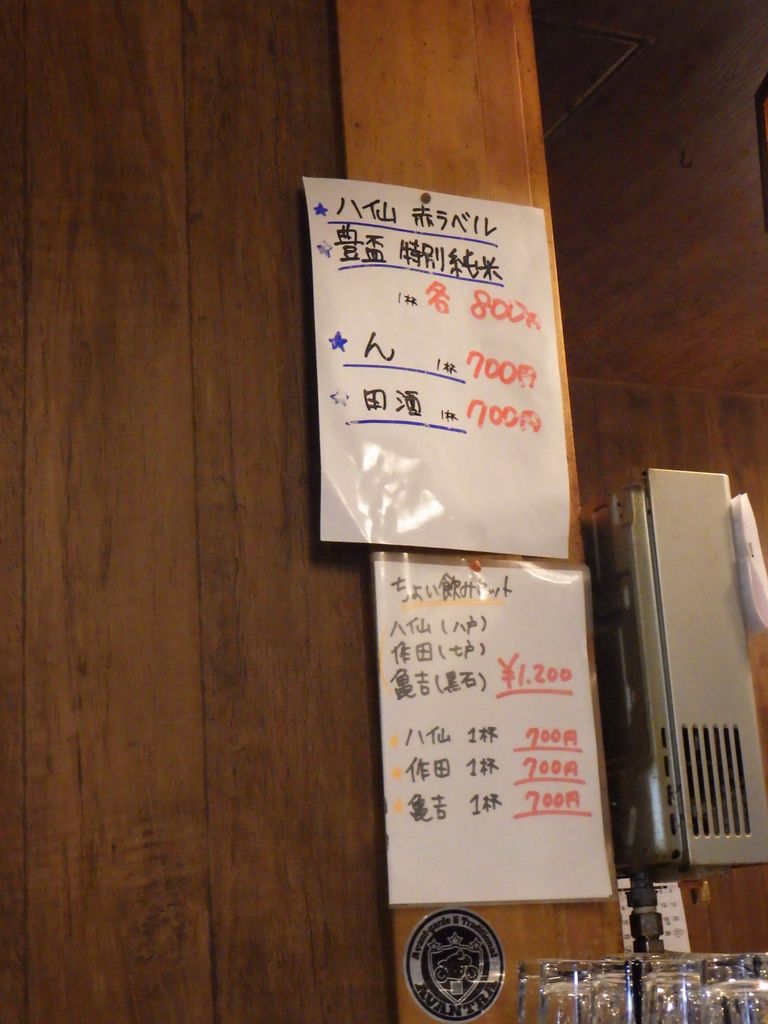 ★ 八仙 赤ラベル
☆ 豊盃 特別純米
1杯 各 800円
★ ん 1杯 700円
☆ 田酒 1杯 700円
ちょい飲みセット
八仙(八戸)
作田(七戸)
亀吉(黒石) ¥1.200
★ 八仙 1杯 700円
★ 作田 1杯 700円
★ 亀吉 1杯 700円
Avant-garde & Traditional
AVANTRA